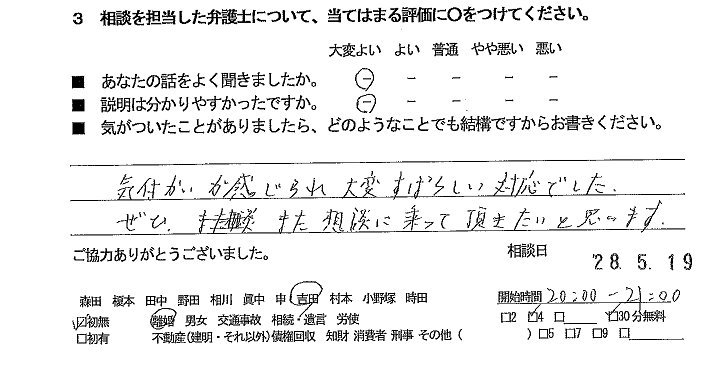 3 相談を担当した弁護士について、当てはまる評価に〇をつけてください。
大変よい よい 普通 やや悪い 悪い
■ あなたの話をよく聞きましたか。 － － － － －
■ 説明は分かりやすかったですか。 － － － － －
■ 気がついたことがありましたら、どのようなことでも結構ですからお書きください。
気付かいが感じられ 大変すばらしい対応でした.
ぜひ、また また 想談に乗って頂きたいと思います.
ご協力ありがとうございました。
相談日 28.5.19
森田 榎本 田中 野田 相川 眞中 申 吉田 村本 小野塚 時田
開始時間 20:00－21:00
☑初無 離婚 男女 交通事故 相続・遺言 労使
□2 ☑4 □ ☑30分無料
□初有 不動産(建明・それ以外)債権回収 知財 消費者 刑事 その他 ( ) □5 □7 □9 □